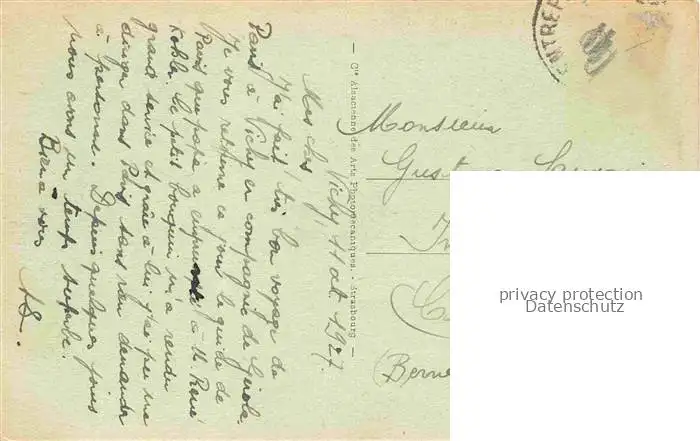 Vichy, 11 oct. 1927.
Mes chers,
J'ai fait très bon voyage de
Paris à Vichy en compagnie de
Je vous retourne ce jour le guide de
Paris que papa a emprunté à M. René
Kohler. Ce petit bouquin m'a rendu
grand service et grâce à lui j'ai pu me
diriger dans Paris sans rien demander
à personne. Depuis quelques jours
nous avons un temps superbe.
Bien à vous
— Cie Alsacienne des Arts Photomécaniques. - Strasbourg —
Monsieur
(Berne
privacy protection
Datenschutz